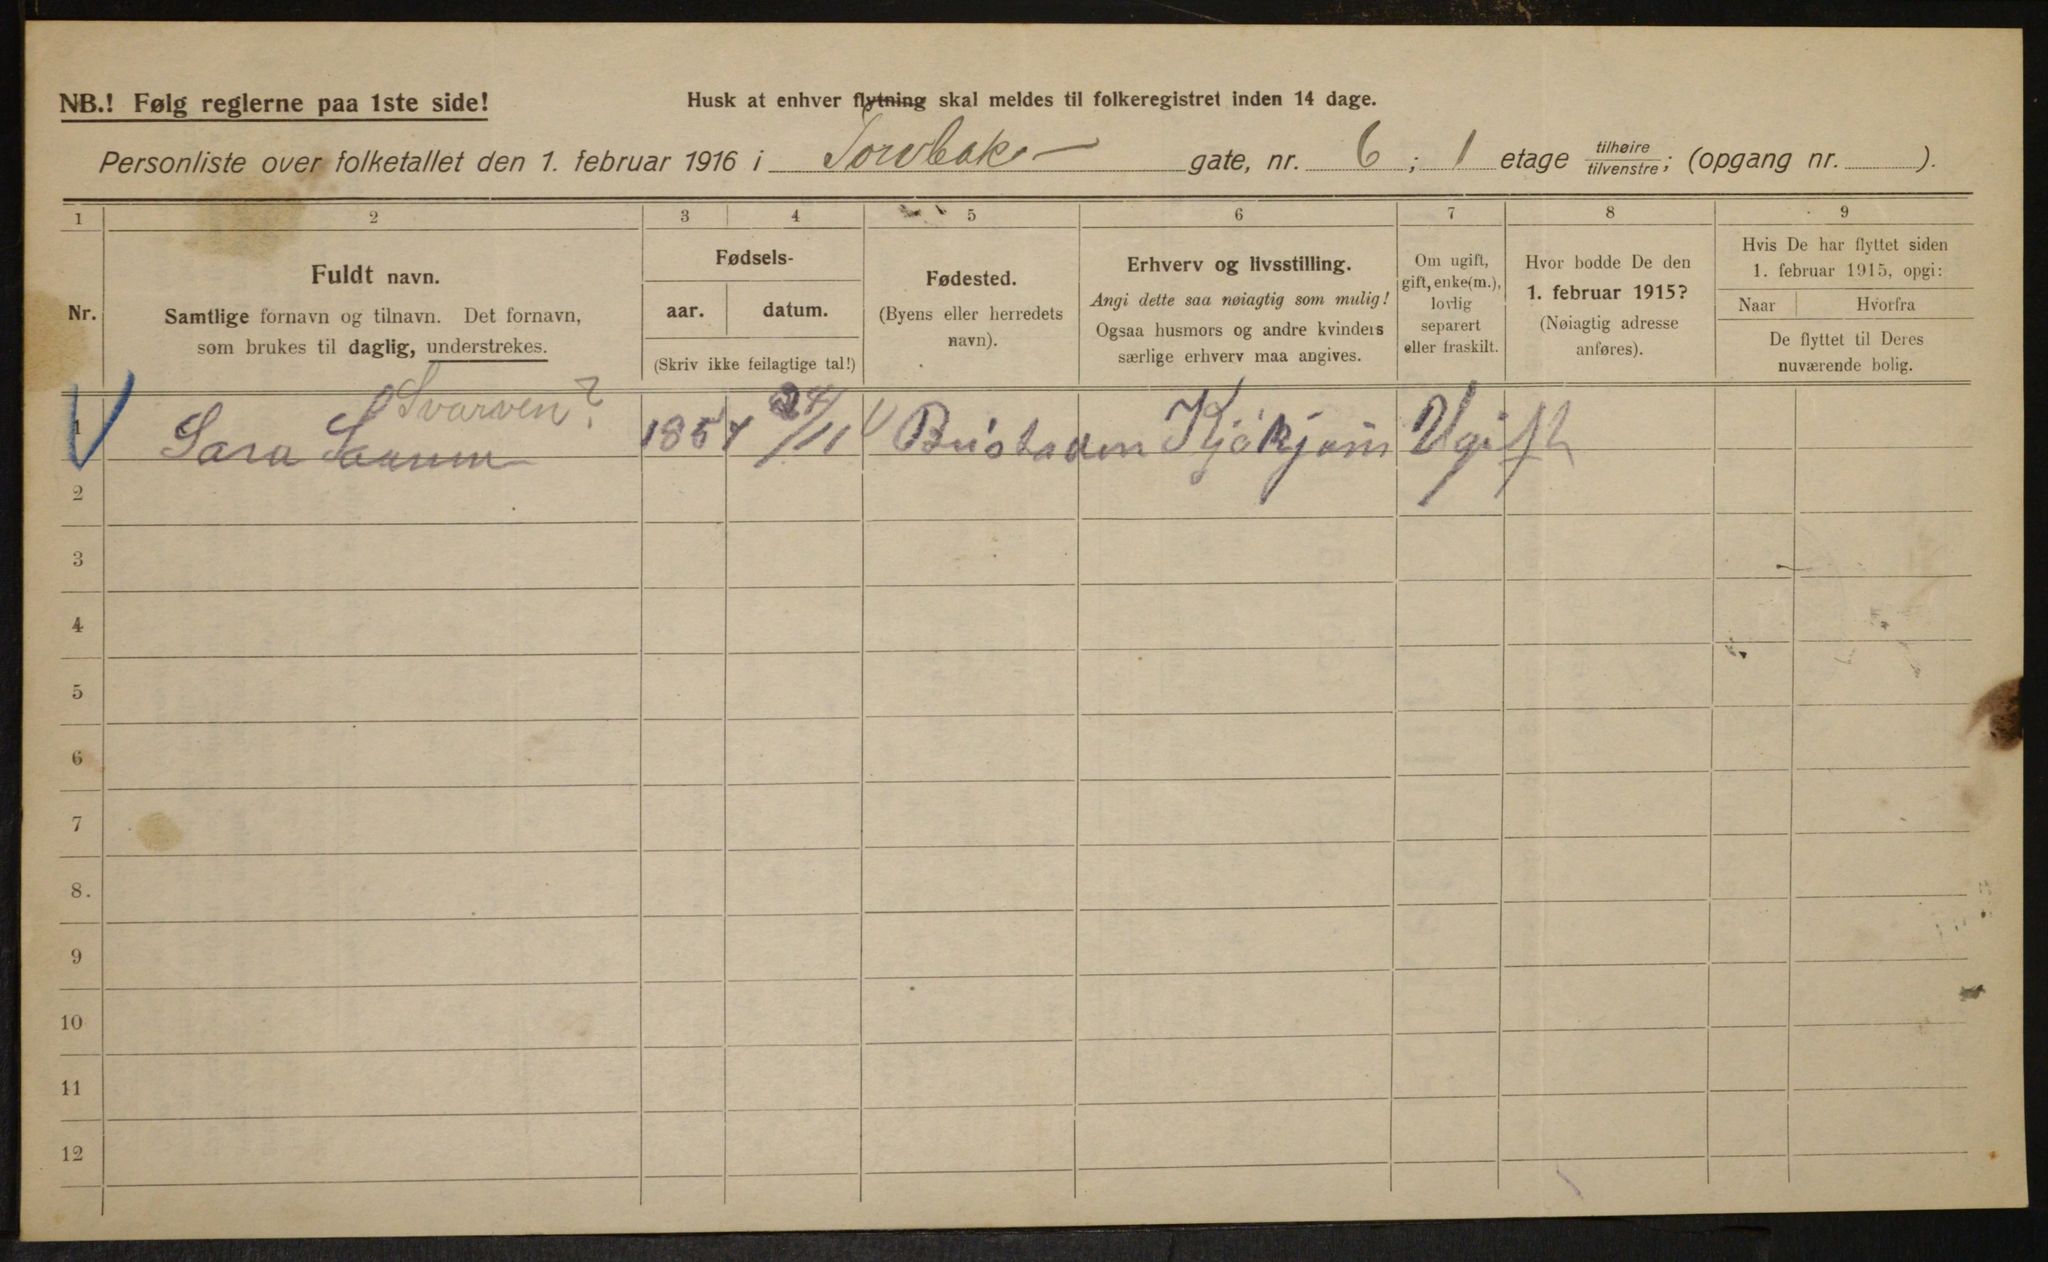 NB.! Følg reglerne paa 1ste side!
Husk at enhver flytning skal meldes til folkeregistret inden 14 dage.
Personliste over folketallet den 1. februar 1916 i Torvbak gate, nr. 6 ; 1 etage tilhøire/tilvenstre; (opgang nr. ).
1 2 3 4 5 6 7 8 9
Nr.
Fuldt navn.
Samtlige fornavn og tilnavn. Det fornavn,
som brukes til daglig, understrekes.
Fødsels-
aar. datum.
(Skriv ikke feilagtige tal!)
Fødested.
(Byens eller herredets
navn).
Erhverv og livsstilling.
Angi dette saa nøiagtig som mulig!
Ogsaa husmors og andre kvinders
særlige erhverv maa angives.
Om ugift,
gift, enke(m.),
lovlig
separert
eller fraskilt.
Hvor bodde De den
1. februar 1915?
(Nøiagtig adresse
anføres).
Hvis De har flyttet siden
1. februar 1915, opgi:
Naar Hvorfra
De flyttet til Deres
nuværende bolig.
Svarven?
1 Sara 1857 24/11 Bustaden Ugift
2
3
4
5
6
7
8.
9
10
11
12